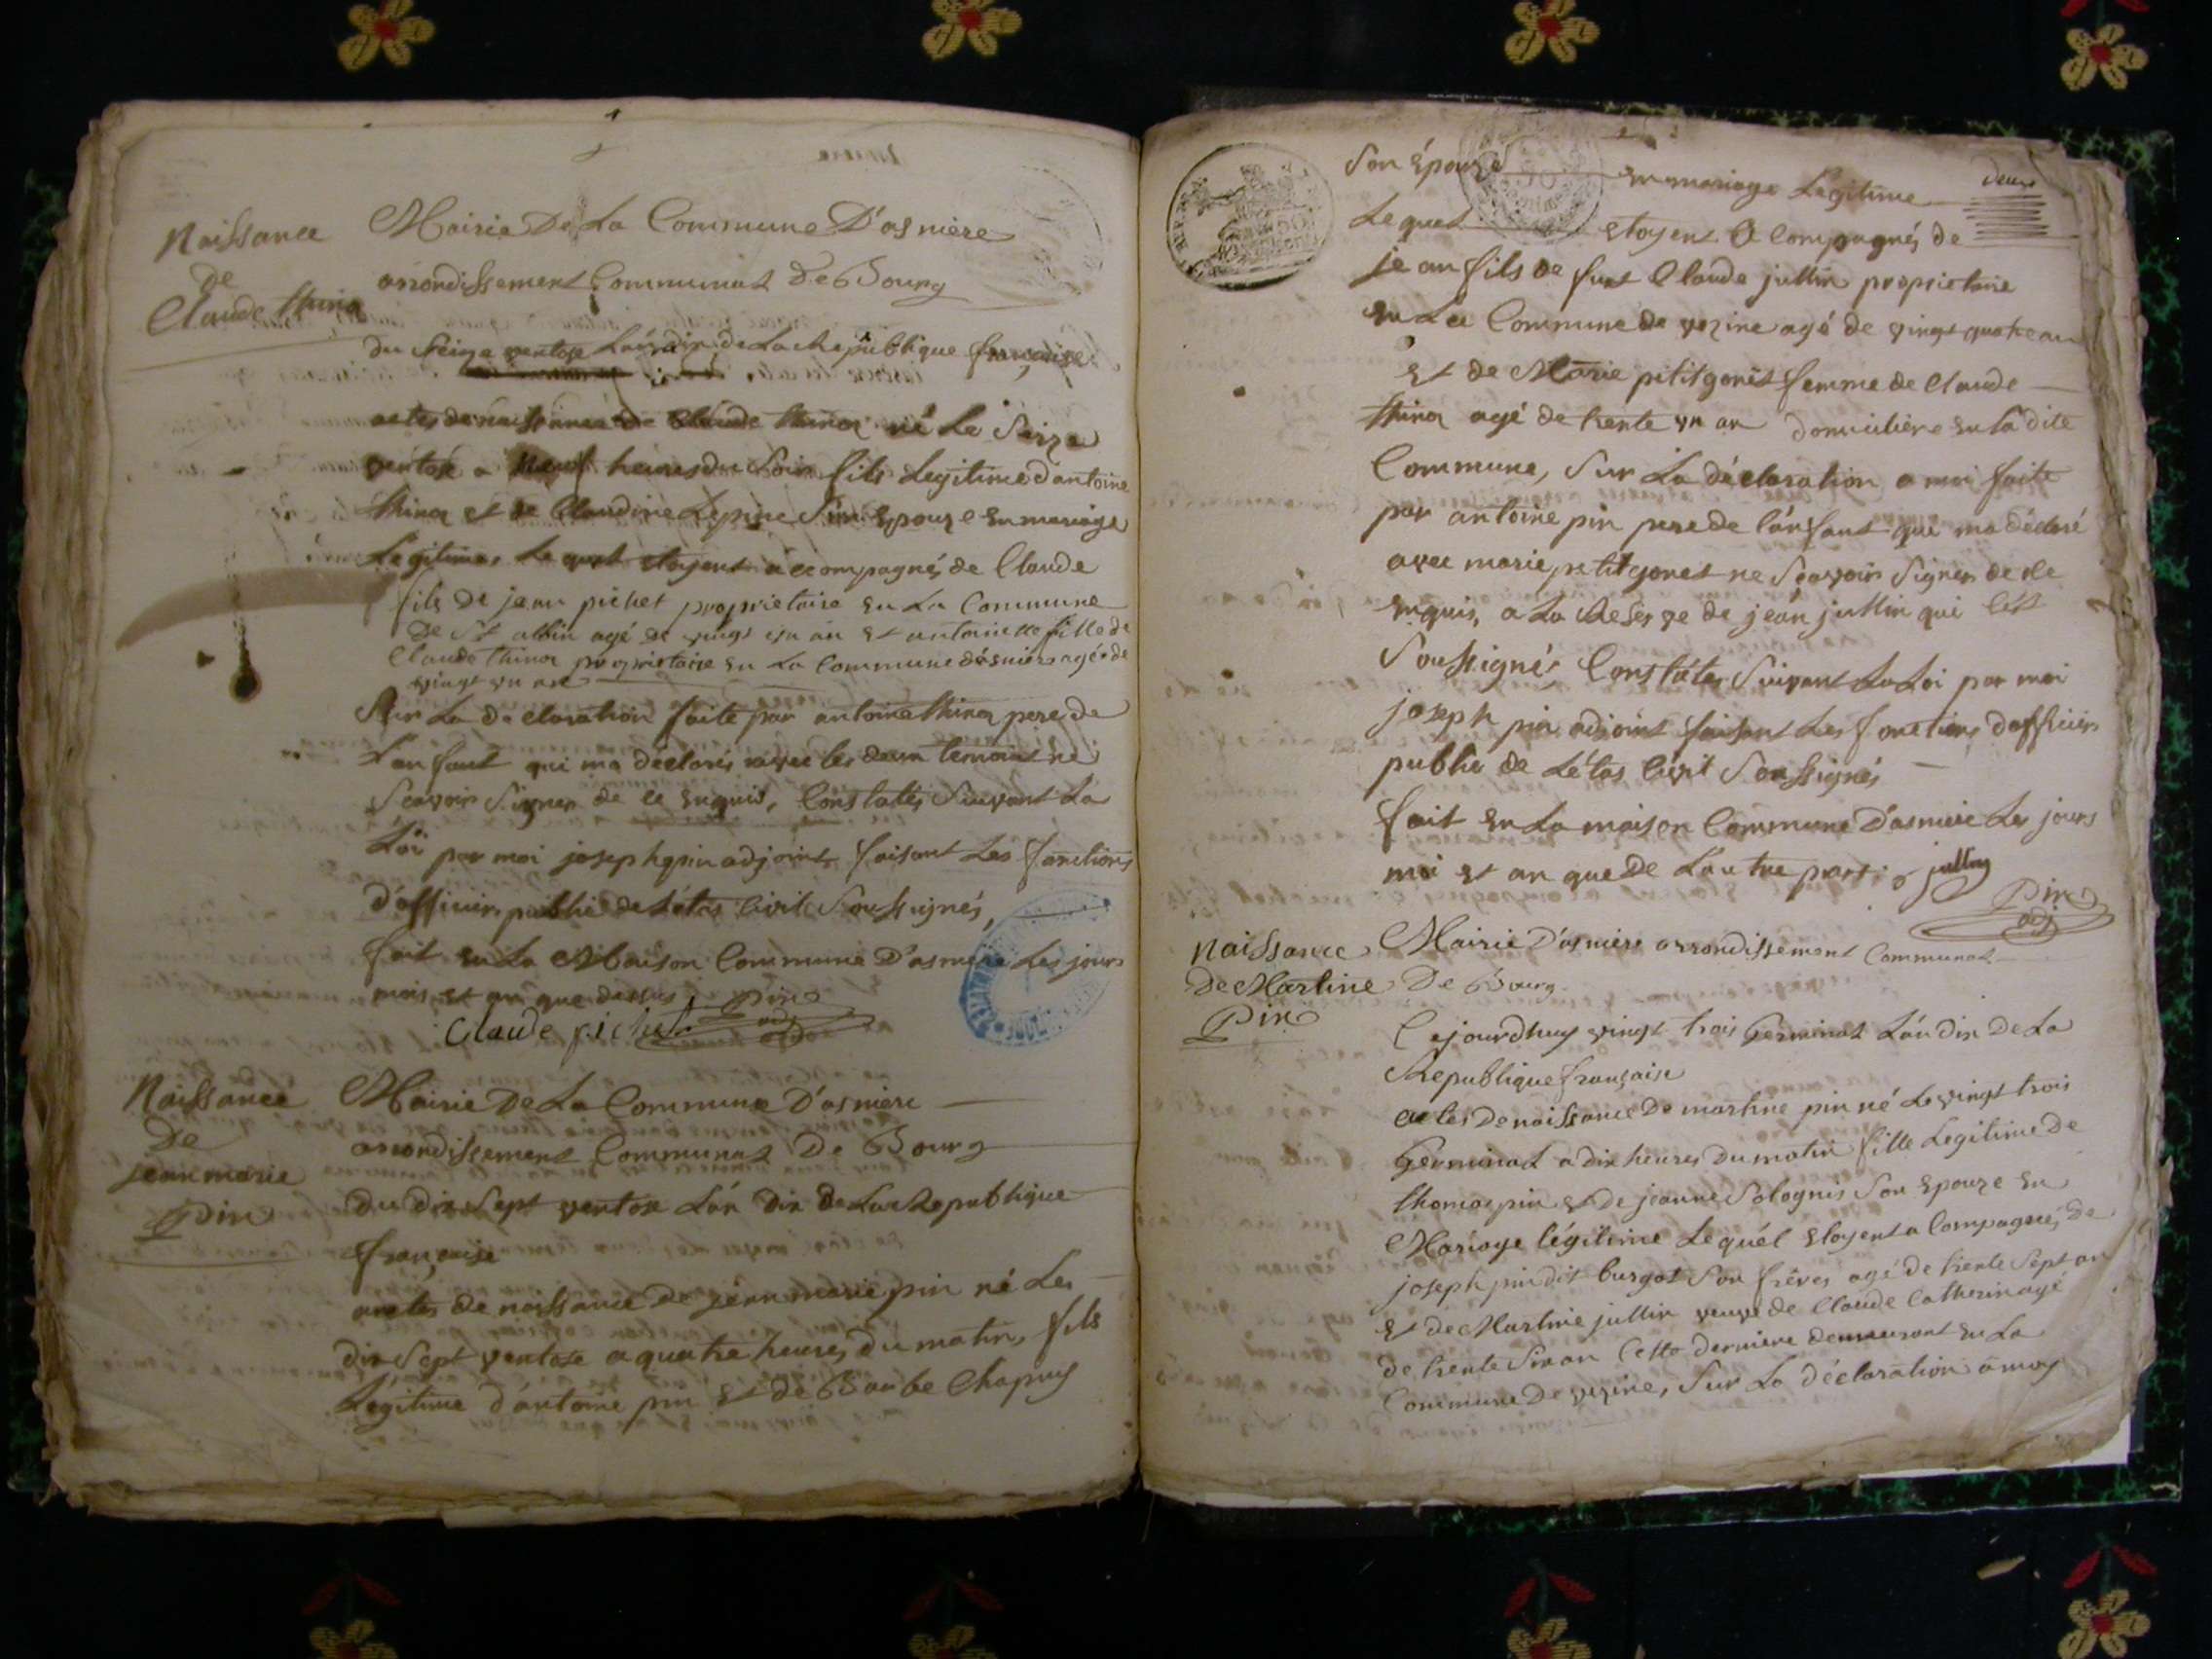 Naissance
de
Claude thinon
Mairie De La Commune D'asniere
arrondissement Communat De Bourg
du Seize ventose L'an dix de La Republique française
actes de naissance de Claude thinon né Le Seize
ventose a neuf heures du Soir fils Legitime d'antoine
thinon et de Claudine Lepine Son Epouze En mariage
Legitime, Le quel Etoyent accompagnés de Claude
fils de jean pichet proprietaire En La Commune
de St albin agé de vingt un an Et antoinette fille de
Claude thinon proprietaire En La Commune d'asniere agée de
vingt un an
Sur La declaration faite par antoine thinon pere de
L'anfant qui ma déclarés avec les deux temoint ne
Scavoir Signer de ce Enquis, Constatés Suivant La
Loi par moi joseph pin adjoint faisant Les fonctions
d'officier public de L'étas Civil Soussignés,
fait En La Maison Commune D'asniere Les jours
mois et an que dessus, Pin
adj
Claude pichet
Naissance
De
jean marie
Pin
Mairie De La Commune D'asniere
arrondissement Communat De Bourg
Du dix Sept ventose L'an dix de La Republique
française
actes de naissance de jean marie pin né Les
dix Sept ventose a quatre heures du matin, fils
Légitime d'antoine pin Et de Barbe Chapuy
deux
Son épouze En mariage Legitime
Le quel Etoyent a Compagnés de
jean fils de fut Claude jullin proprietaire
En La Commune de vezine agé de vingt quatre an
Et de Marie petitgonet femme de Claude
thinon agé de trente un an domiciliere En la dite
Commune, Sur La déclaration a moi faite
par antoine pin pere de l'anfant qui ma déclaré
avec marie petitgonet ne Scavoir Signer de ce
Enquis, a La Reserve de jean jullin qui l'ést
Soussignés, Constátés Suivant La Loi par moi
joseph pin adjoint faisant Les fonctions d'officier
public de L'étas Civil Soussignés
fait En La maison Commune D'asniere Les jours
moi et an que de Lautre part
jullin
Pin
adj
Naissance
De Martine
Pin
Mairie D'asniere arrondissement Communat
De Bourg
Cejourdhuy vingt trois Germinal L'an dix De La
Republique française
actes De naissance De martine pin né Le vingt trois
Germinal a dix heures Du matin fille Legitime de
thomas pin et de jeanne Solognis Son Epouze En
Mariage légitime Le quél Etoyent a Compagnés de
joseph pin dit burgot Son frêres agé de trente Sept an
Et de Martine jullin veuve de Claude Catherin agé
de trente Six an Cette derniere demeurant En La
Commune De vezine, Sur La déclaration a moy